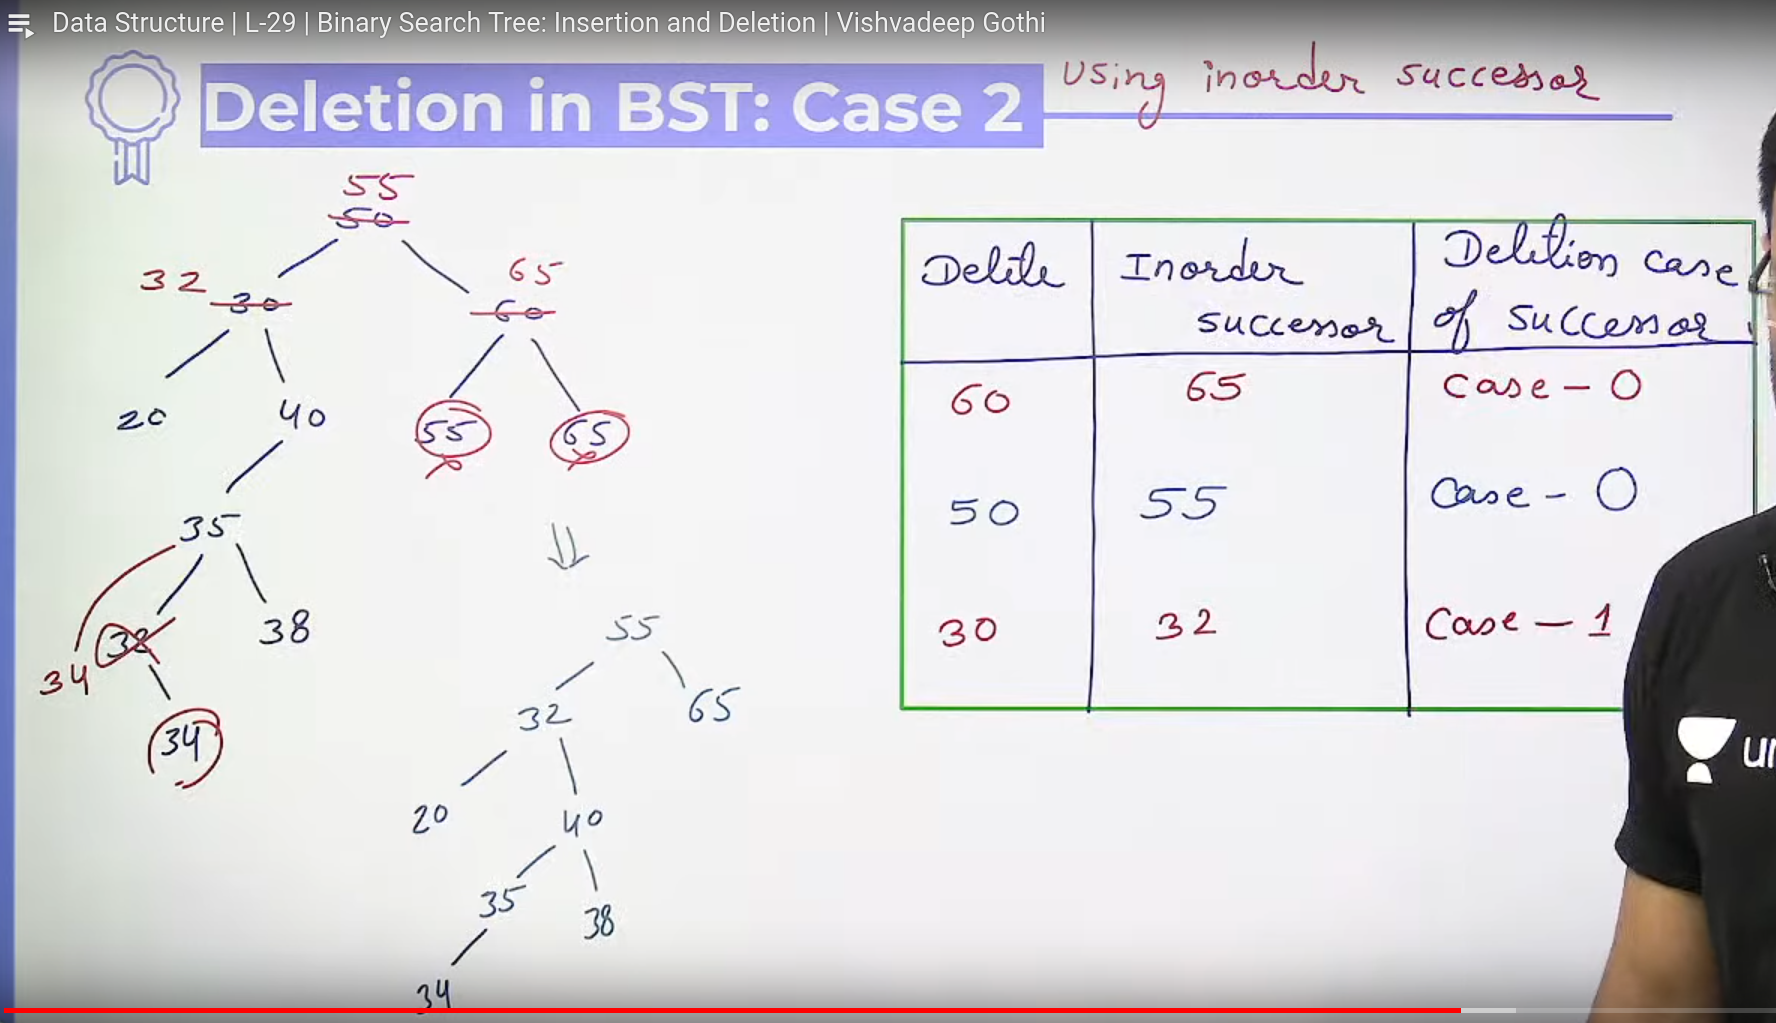 Data Structure | L-29 | Binary Search Tree: Insertion and Deletion | Vishvadeep Gothi
Deletion in BST: Case 2
Using inorder successor
55
50
32
30
65
60
20
40
55
65
35
34
32
38
34
55
32
65
20
40
35
38
34
Delete
Inorder
successor
Deletion case
of successor
60
65
Case - 0
50
55
Case - 0
30
32
Case - 1